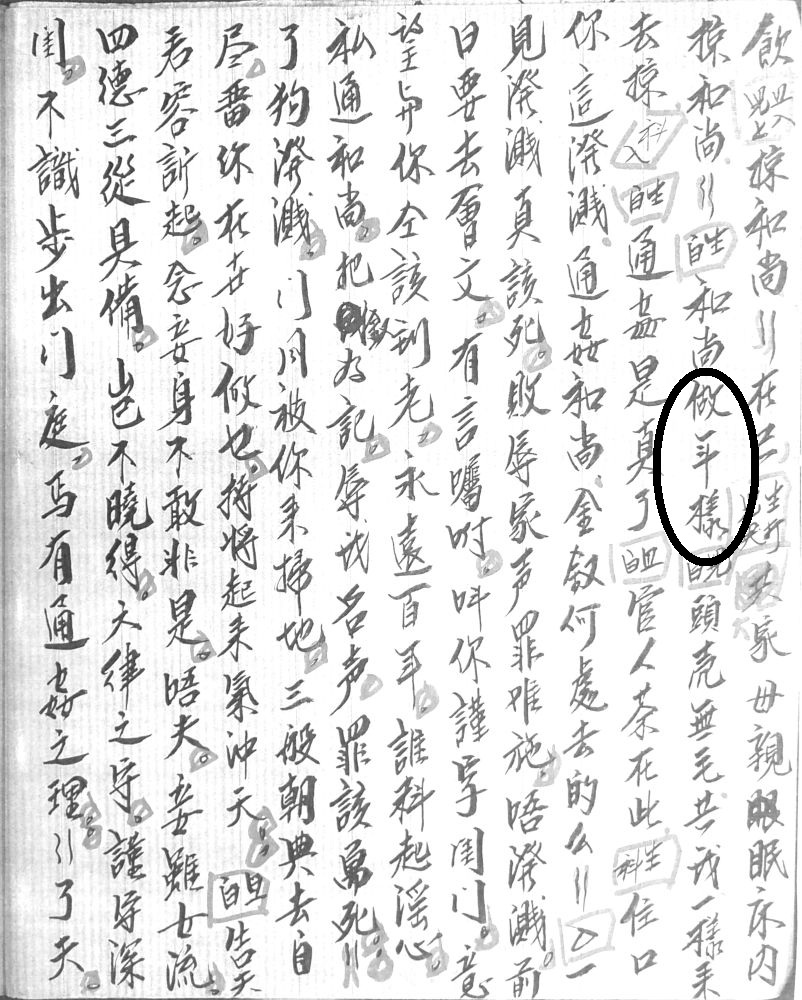 飲 兒上 掠和尚〻在 生打 共家母親眼眠床內
掠和尚〻 白生 和尚做年樣 白兒 頭壳無毛共我一樣来
去掠 科入 白生 通姦是真了 白旦 官人茶在此 科生 住口
你這潑濺通姦和尚金釵何處去的么〻 一
見潑濺真該死敗辱家声罪唯施唔潑濺前
日要去會文有言囑咐叫你謹守閨门意
望与你仝該到老永遠百年誰料起淫心
私通和尚把 為記辱我名声罪該萬死〻
了狗潑濺门風被你来掃地三般朝典去自
尽番你在世好做乜将起来氣沖天 白旦 告天
君容訴起念妾身不敢非是唔夫妾雖女流
四德三從具備豈不曉得大律之守謹守深
閨不識步出门庭焉有通姦之理〻了夫